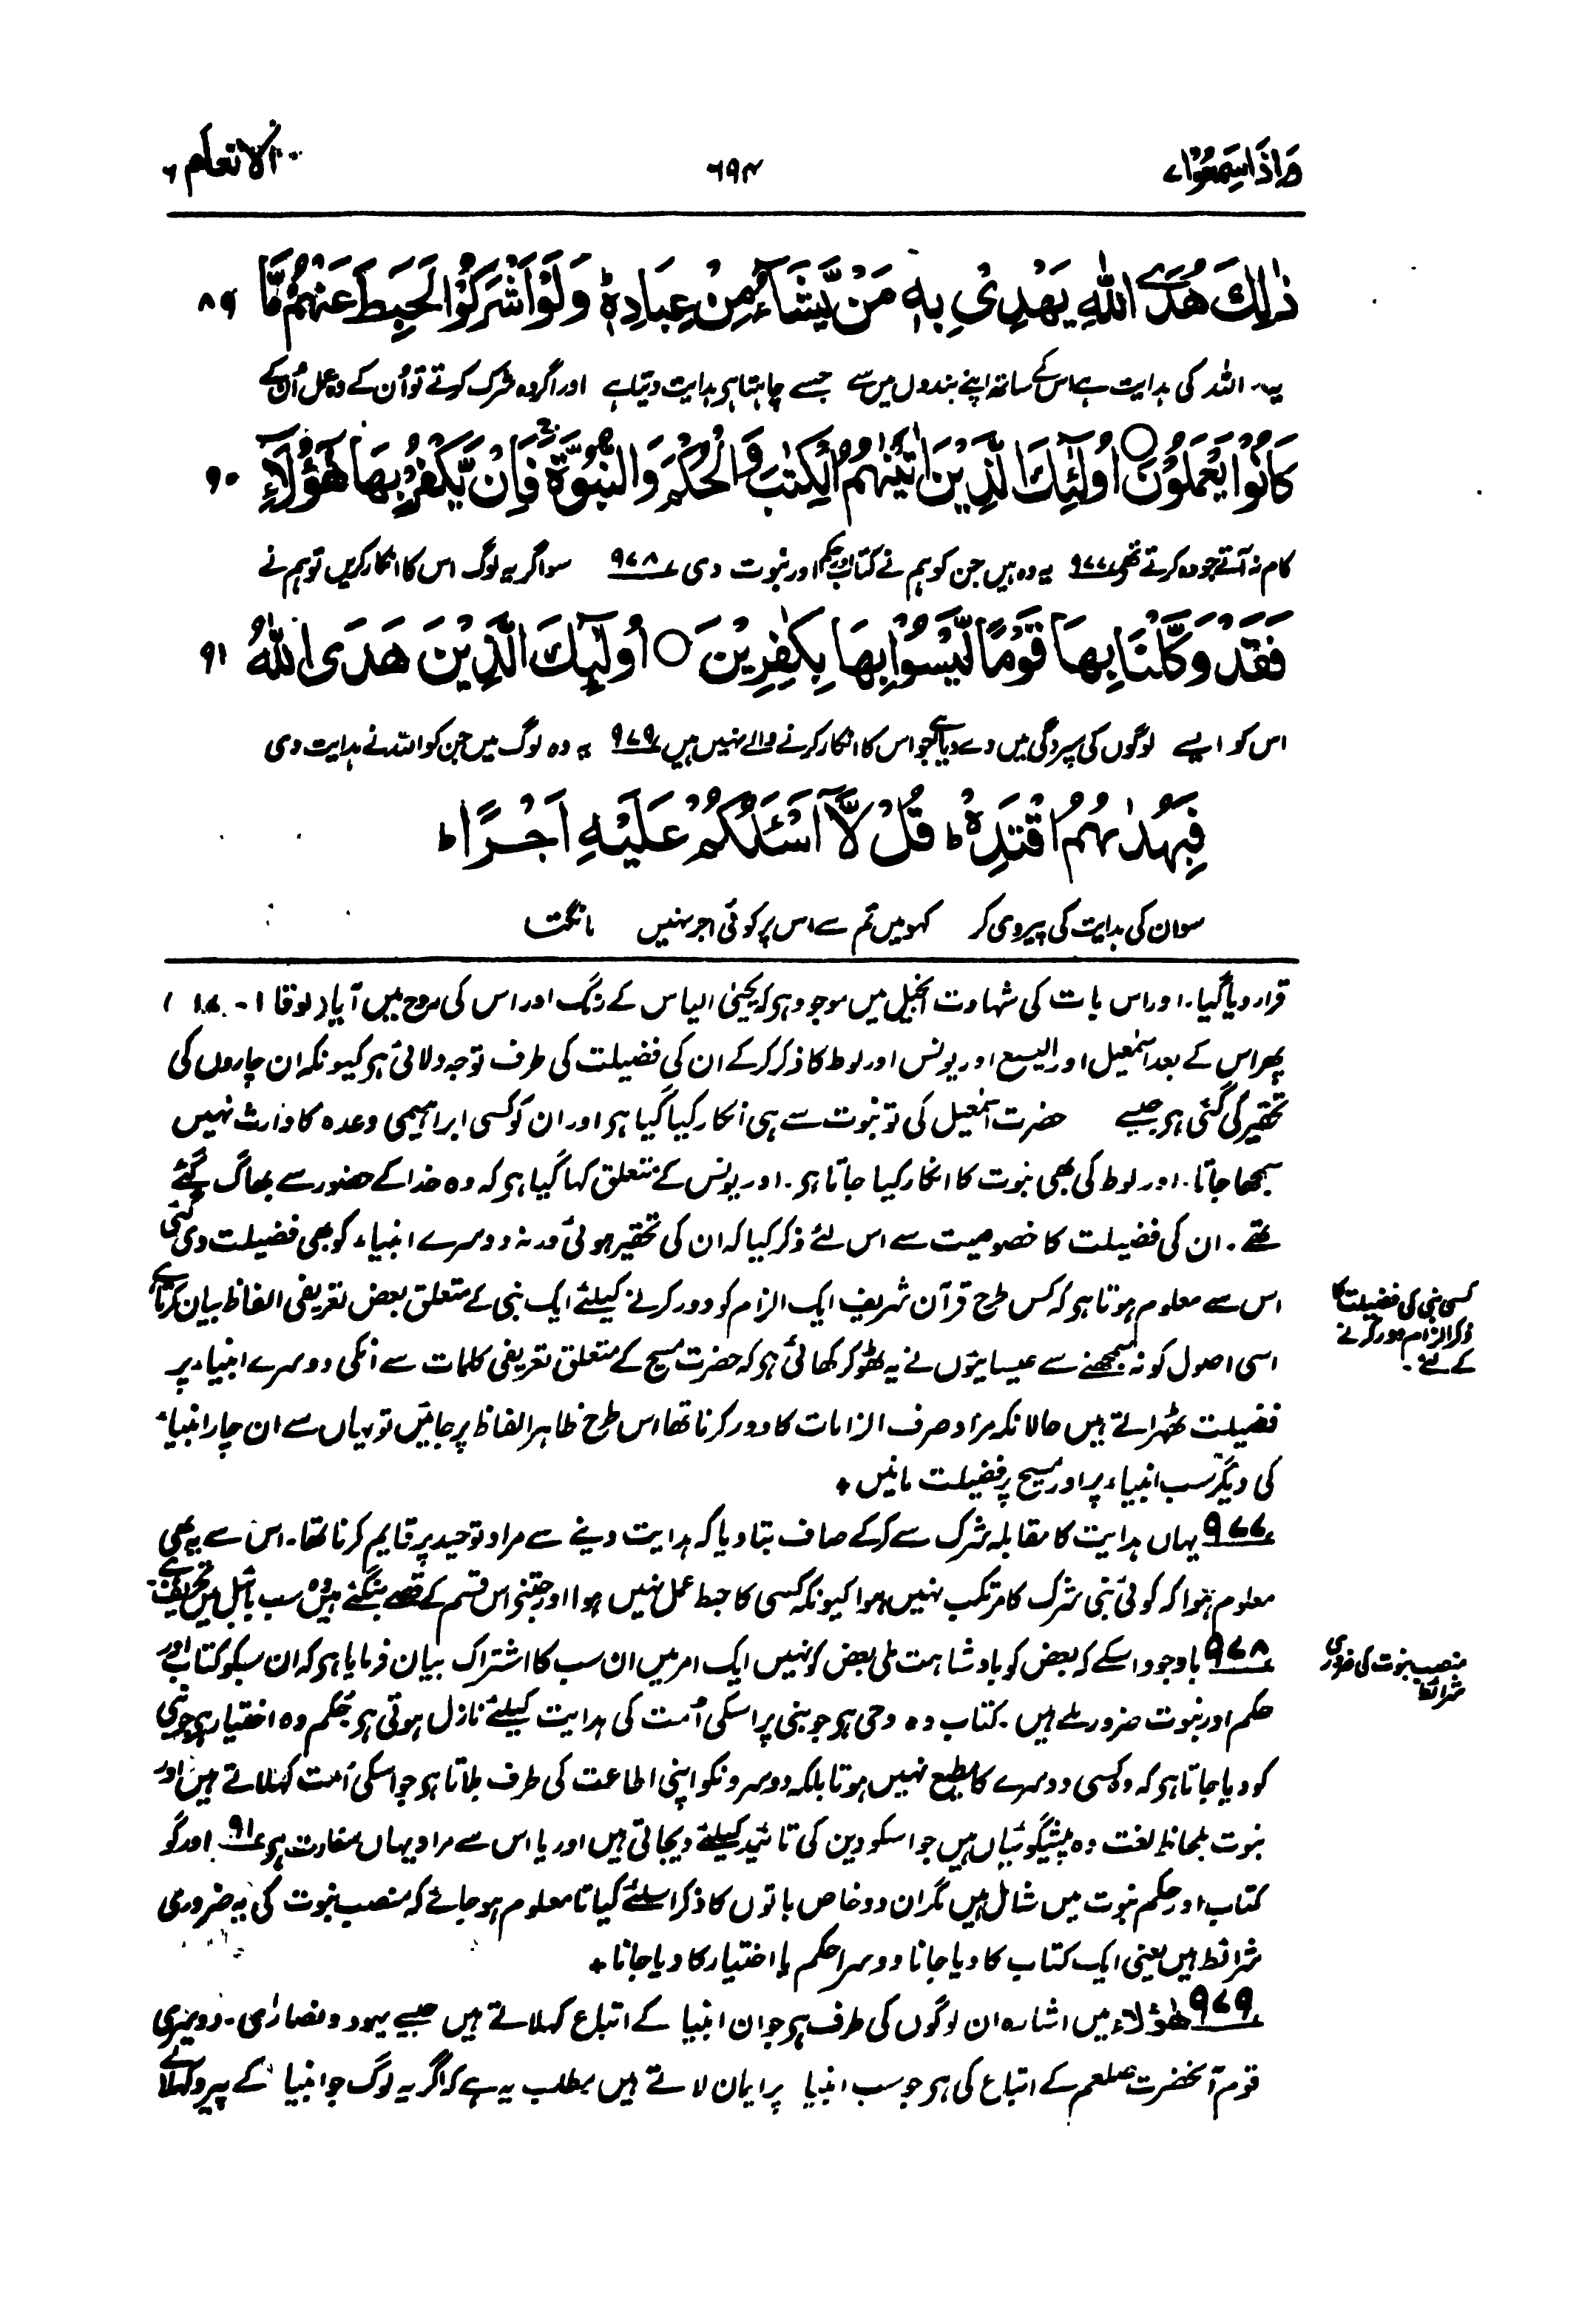 واذاسمعوا ۷
۶۹۴
الانعام ۶
ذٰلِكَ هُدَى اللّٰهِ يَهْدِىْ بِهٖ مَنْ يَّشَآءُ مِنْ عِبَادِهٖ ؕ وَلَوْ اَشْرَكُوْا لَحَبِطَ عَنْهُمْ مَّا ۸۹
یہ اللہ کی ہدایت ہے اس کے ساتھ اپنے بندوں میں سے جسے چاہتا ہر ہدایت دیتا ہے اور اگر وہ شرک کرتے تو اُن کے وہ عمل اُن کے
كَانُوْا يَعْمَلُوْنَ ○ اُولٰٓئِكَ الَّذِيْنَ اٰتَيْنٰهُمُ الْكِتٰبَ وَ الْحُكْمَ وَ النُّبُوَّةَ ۚ فَاِنْ يَّكْفُرْ بِهَا هٰٓؤُلَآءِ ۹۰
کام نہ آتے جو وہ کرتے تھے ۹۷۷ یہ وہ ہیں جن کو ہم نے کتاب اور حکم اور نبوت دی ۹۷۸ سو اگر یہ لوگ اس کا انکار کریں تو ہم نے
فَقَدْ وَكَّلْنَا بِهَا قَوْمًا لَّيْسُوْا بِهَا بِكٰفِرِيْنَ ○ اُولٰٓئِكَ الَّذِيْنَ هَدَى اللّٰهُ ۹۱
اس کو ایسے لوگوں کی سپردگی میں دے دیا ہے جو اس کا انکار کرنے والے نہیں ہیں ۹۷۹ یہ وہ لوگ ہیں جن کو اللہ نے ہدایت دی
فَبِهُدٰىهُمُ اقْتَدِهْ ؕ قُلْ لَّآ اَسْـَٔلُكُمْ عَلَيْهِ اَجْرًا ؕ
سو ان کی ہدایت کی پیروی کر کہو میں تم سے اس پر کوئی اجر نہیں مانگتا
قرار دیا گیا۔ اور اس بات کی شہادت انجیل میں موجود ہر کہ یحییٰ الیاس کے رنگ اور اس کی روح میں آیا (لوقا ۱-۱۷)
پھر اس کے بعد اسمٰعیل اور الیسع اور یونس اور لوط کا ذکر کر کے ان کی فضیلت کی طرف توجہ دلائی ہر کیونکہ ان چاروں کی
تحقیر کی گئی ہر جیسے حضرت اسمٰعیل کی تو نبوت سے ہی انکار کیا گیا ہر اور ان کو کسی ابراہیمی وعدہ کا وارث نہیں
سمجھا جاتا۔ اور لوط کی بھی نبوت کا انکار کیا جاتا ہر۔ اور یونس کے متعلق کہا گیا ہر کہ وہ خدا کے حضور سے بھاگ گئے
تھے۔ ان کی فضیلت کا خصوصیت سے اس لئے ذکر کیا کہ ان کی تحقیر ہوئی ورنہ دوسرے انبیاء کو بھی فضیلت دی گئی
اس سے معلوم ہوتا ہر کہ کس طرح قرآن شریف ایک الزام کو دور کرنے کیلئے ایک نبی کے متعلق بعض تعریفی الفاظ بیان کرتا ہے
کسی نبی کی فضیلت کا
ذکر الزام دور کرنے
کے لئے۔
اسی اصول کو نہ سمجھنے سے عیسائیوں نے یہ ٹھوکر کھائی ہر کہ حضرت مسیح کے متعلق تعریفی کلمات سے انکی دوسرے انبیاء پر
فضیلت ٹھہراتے ہیں حالانکہ مراد صرف الزامات کا دور کرنا تھا اس طرح ظاہر الفاظ پر جائیں تو یہاں سے ان چار انبیاء
کی دیگر سب انبیاء پر اور مسیح پر فضیلت مانیں +
۹۷۷ یہاں ہدایت کا مقابلہ شرک سے کر کے صاف بتا دیا کہ ہدایت دینے سے مراد توحید پر قایم کرنا تھا۔ اس سے یہ بھی
معلوم ہوا کہ کوئی نبی شرک کا مرتکب نہیں ہوا کیونکہ کسی کا حبط عمل نہیں ہوا اور جتنے اس قسم کے قصے ہیں وہ سب بائبل میں تحریف ہے
۹۷۸ باوجود اسکے کہ بعض کو بادشاہت ملی بعض کو نہیں ایک امر میں ان سب کا اشتراک بیان فرمایا ہر کہ ان سبکو کتاب اور
منصب نبوت کی ضروری
شرائط
حکم اور نبوت ضرور ملے ہیں۔ کتاب وہ وحی ہر جو نبی پر اسکی اُمت کی ہدایت کیلئے نازل ہوتی ہر حکم وہ اختیار ہر جو نبی
کو دیا جاتا ہر کہ وہ کسی دوسرے کا مطیع نہیں ہوتا بلکہ دوسرونکو اپنی اطاعت کی طرف بلاتا ہر جو اسکی اُمت کہلاتے ہیں اور
نبوت بلحاظ لغت وہ پیشگوئیاں ہیں جو اسکو دین کی تائید کیلئے دیجاتی ہیں اور یا اس سے مراد یہاں سفارت ہر ۹۱ اور گو
کتاب اور حکم نبوت میں شامل ہیں مگر ان دو خاص باتوں کا ذکر اسلئے کیا تا معلوم ہو جائے کہ منصب نبوت کی یہ ضروری
شرائط ہیں یعنی ایک کتاب کا دیا جانا دوسرا حکم یا اختیار کا دیا جانا +
۹۷۹ ھٰؤلاء میں اشارہ ان لوگوں کی طرف ہر جو ان انبیا کے اتباع کہلاتے ہیں جیسے یہود و نصاریٰ۔ دوسری
قوم آنحضرت صلعم کے اتباع کی ہر جو سب انبیا پر ایمان لاتے ہیں مطلب یہ ہے کہ اگر یہ لوگ جو انبیا کے پیرو کہلاتے